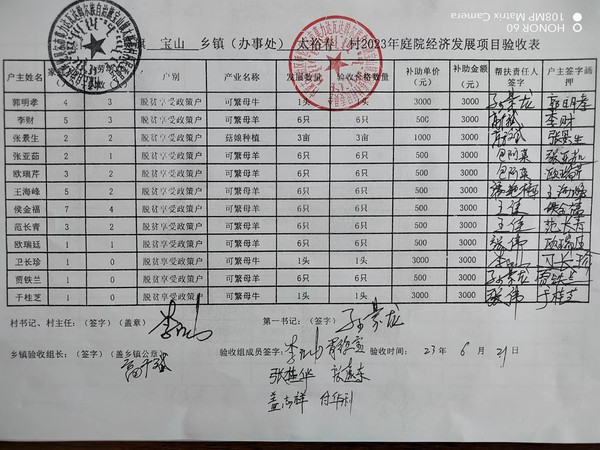 HONOR 60
108MP Matrix Camera
旗 宝山 乡镇（办事处） 太裕春 村2023年庭院经济发展项目验收表
户主姓名 户别 产业名称 发展数量 验收合格数量 补助单价（元） 补助金额（元） 帮扶责任人签字 户主签字画押
郭明孝 4 3 脱贫享受政策户 可繁母牛 1头 1头 3000 3000 郭明孝
李财 5 3 脱贫享受政策户 可繁母羊 6只 6只 500 3000 李财
张景生 2 2 脱贫享受政策户 菇娘种植 3亩 3亩 1000 3000 张景生
张亚茹 2 1 脱贫享受政策户 可繁母羊 6只 6只 500 3000 张亚茹
欧瑞芹 3 2 脱贫享受政策户 可繁母羊 6只 6只 500 3000 欧瑞芹
王海峰 5 2 脱贫享受政策户 可繁母羊 6只 6只 500 3000 王海峰
侯金福 7 4 脱贫享受政策户 可繁母羊 6只 6只 500 3000 王佳 侯金福
范长青 3 2 脱贫享受政策户 可繁母羊 6只 6只 500 3000 王佳 范长青
欧瑞廷 1 1 脱贫享受政策户 可繁母羊 6只 6只 500 3000 张伟 欧瑞廷
卫长珍 1 0 脱贫享受政策户 可繁母牛 1头 1头 3000 3000 卫长珍
贾铁兰 1 0 脱贫享受政策户 可繁母羊 6只 6只 500 3000 贾铁兰
于桂芝 1 0 脱贫享受政策户 可繁母牛 1头 1头 3000 3000 张伟 于桂芝
村书记、村主任：（签字）（盖章） 第一书记：（签字）
乡镇验收组长：（签字）（盖乡镇公章） 验收组成员签字： 验收时间： 23 年 6 月 29 日